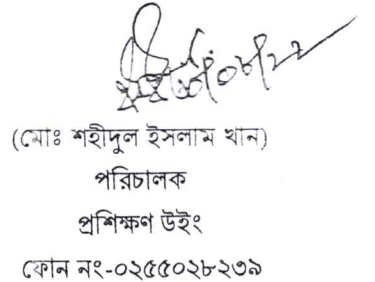 (মোঃ শহীদুল ইসলাম খান)
পরিচালক
প্রশিক্ষণ উইং
ফোন নং-০২৫৫০২৮২৩৯